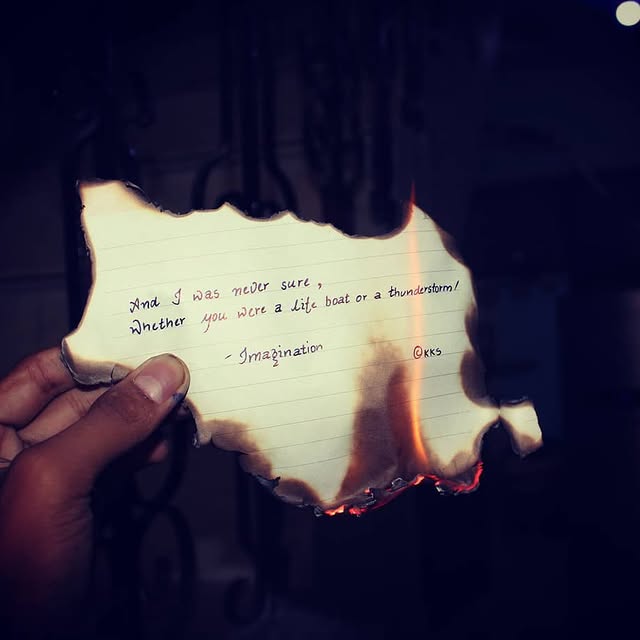 And I was never sure,
Whether you were a life boat or a thunderstorm!
- Imagination
©KKS